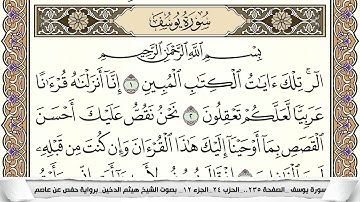 سُورَةُ يُوسُفَ
بِسْمِ اللَّهِ الرَّحْمَٰنِ الرَّحِيمِ
الٓر ۚ تِلْكَ ءَايَٰتُ ٱلْكِتَٰبِ ٱلْمُبِينِ ١ إِنَّآ أَنزَلْنَٰهُ قُرْءَٰنًا
عَرَبِيًّا لَّعَلَّكُمْ تَعْقِلُونَ ٢ نَحْنُ نَقُصُّ عَلَيْكَ أَحْسَنَ
ٱلْقَصَصِ بِمَآ أَوْحَيْنَآ إِلَيْكَ هَٰذَا ٱلْقُرْءَانَ وَإِن كُنتَ مِن قَبْلِهِۦ
سورة يوسف _الصفحة ٢٣٥.. الحزب ٢٤ _الجزء ١٢_ بصوت الشيخ هيثم الدخين _برواية حفص عن عاصم